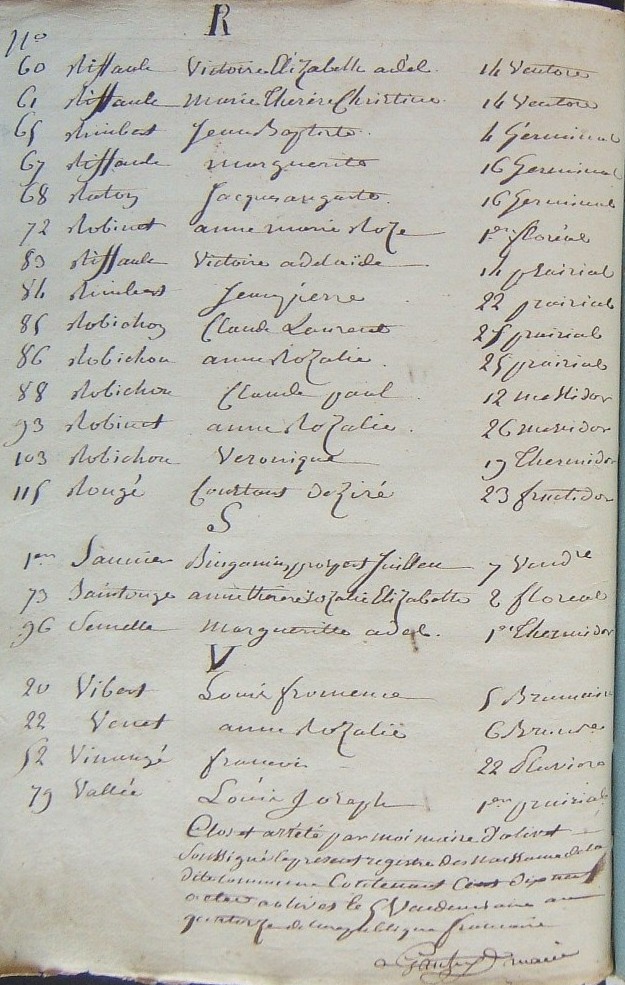 R
No
60 Riffault Victoire Elizabeth adél. 14 Ventose
61 Riffault Marie Therèse Christine 14 Ventose
65 Rimbert Jean Baptiste. 4 Germinal
67 Riffault marguerite 16 Germinal
68 Raton Jacques auguste. 16 Germinal
72 Robinet anne marie Roze 1er floréal
83 Riffault Victoire adelaïde 14 prairial
84 Rimbert Jean pierre 22 prairial
85 Robichon Claude Laurent 25 prairial
86 Robichon anne Rozalie. 25 prairial
88 Robichon Claude paul. 12 messidor
93 Robinet anne Rozalie. 26 messidor
103 Robichon Veronique 19 Thermidor
115 Rougé Constant deziré 23 fructidor
S
1er Saunier Bingamin prospert Juillien 7 Vendre
73 Saintonge anne therese Rozalie Elizabette 2 floreal
96 Semelle Margueritte adel. 1er Thermidor
V
20 Vibert Louis fromence 5 Brumaire
22 Venet anne Rozalie 6 Brumre
52 francois 22 Pluviose
79 Vallée Louis Joseph 1er prairial
Clos et arrété par moi maire d'olivet
Soussigné le present registre des naissances de la
dite commune Contenant Cent dix neuf
actes a olivet le 5 Vendemiaire an
quatorze de la republique francaise
maire